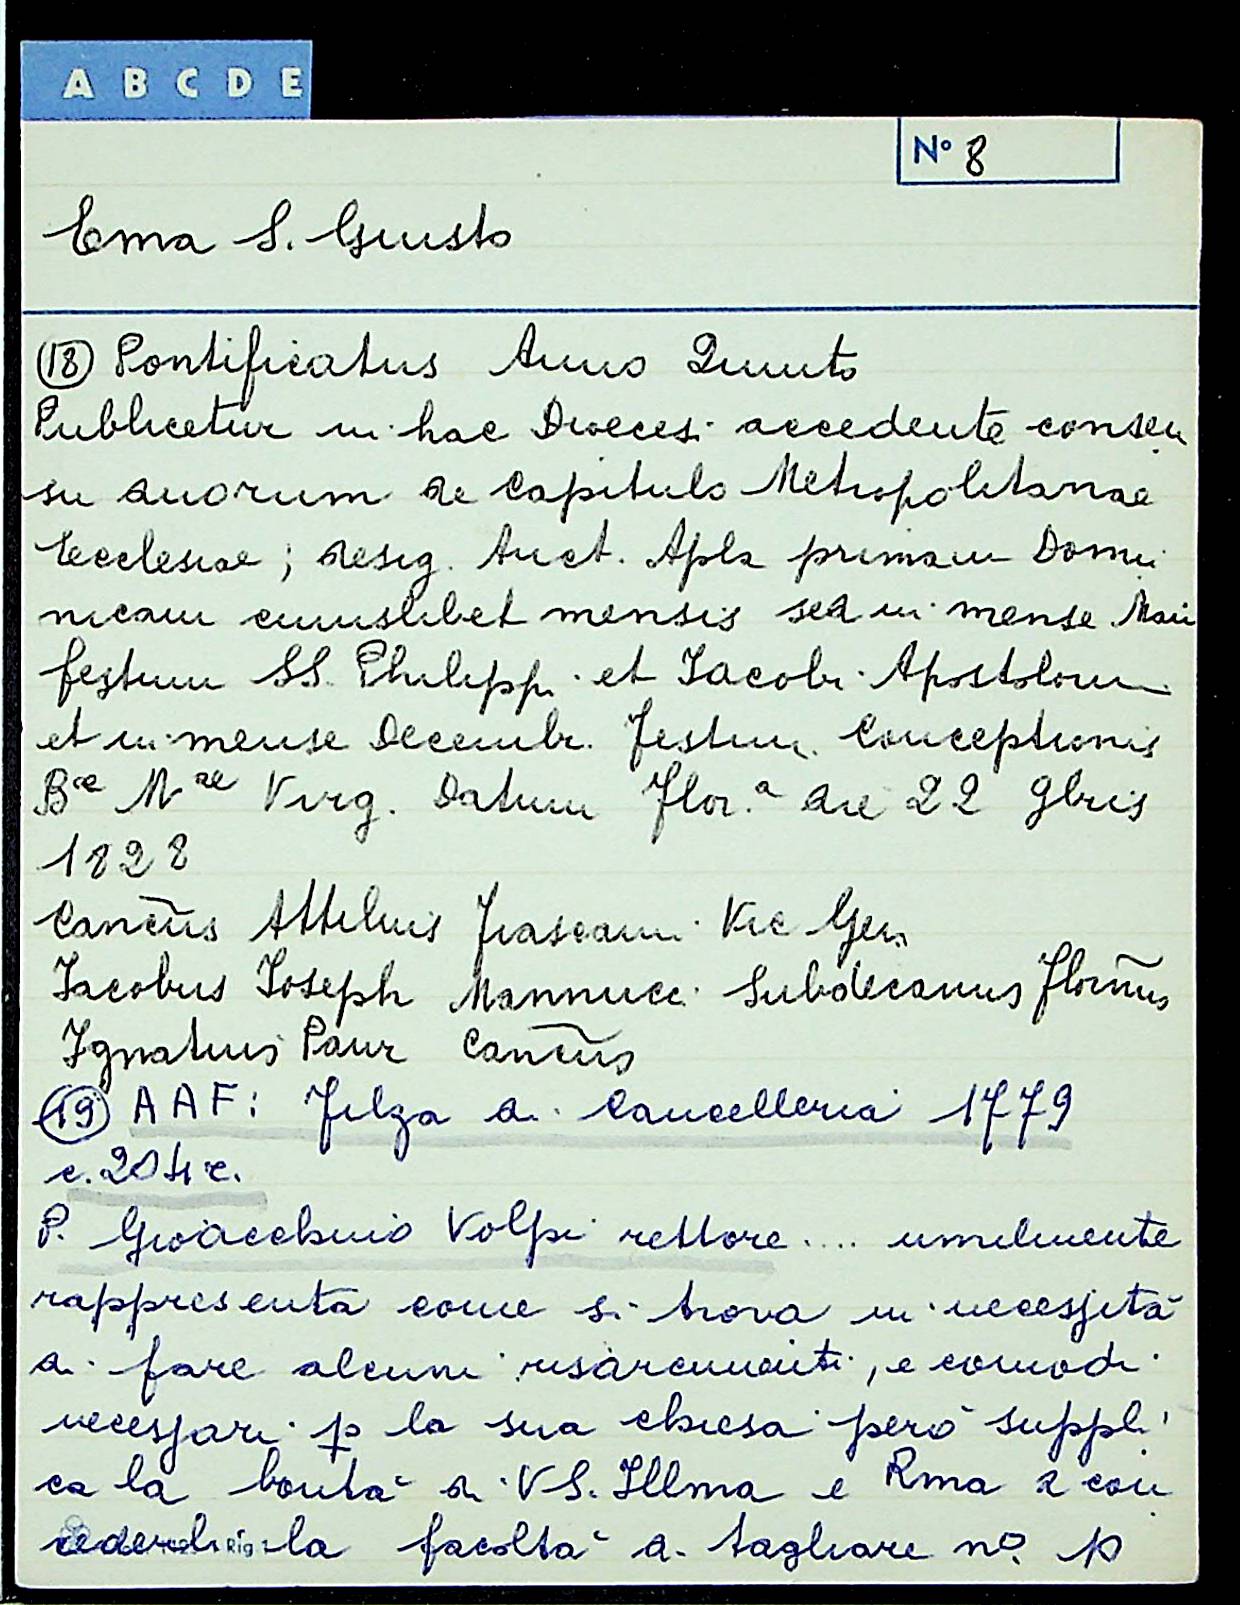 A B C D E
N° 8
Ema S. Giusto
(18) Pontificatus Anno Quinto
Publicetur in hac Dioecesi accedente consen
su duorum de Capitulo Metropolitanae
Ecclesiae; desig. Auct. Apla primam Domi
nicam cuiuslibet mensis sed in mense Maii
festum SS. Philippi et Iacobi Apostolorum
et in mense Decembr. Festum Conceptionis
Bae Mae Virg. Datum Flor.a die 22 9bris
1828
Canc̃us Attilius Fiascaini Vic Gen
Iacobus Ioseph Mannucci Subdecanus Floñus
Ignatius Paur Canc̃us
(19) AAF: Filza di Cancelleria 1779
c. 204 e.
P. Gioacchino Volpi rettore .... umilmente
rappresenta come si trova in necessità
di fare alcuni risarcimenti, e comodi
necessari p la sua chiesa però suppli
ca la bontà di VS. Illma e Rma a con
cederli la facoltà di tagliare no. 10